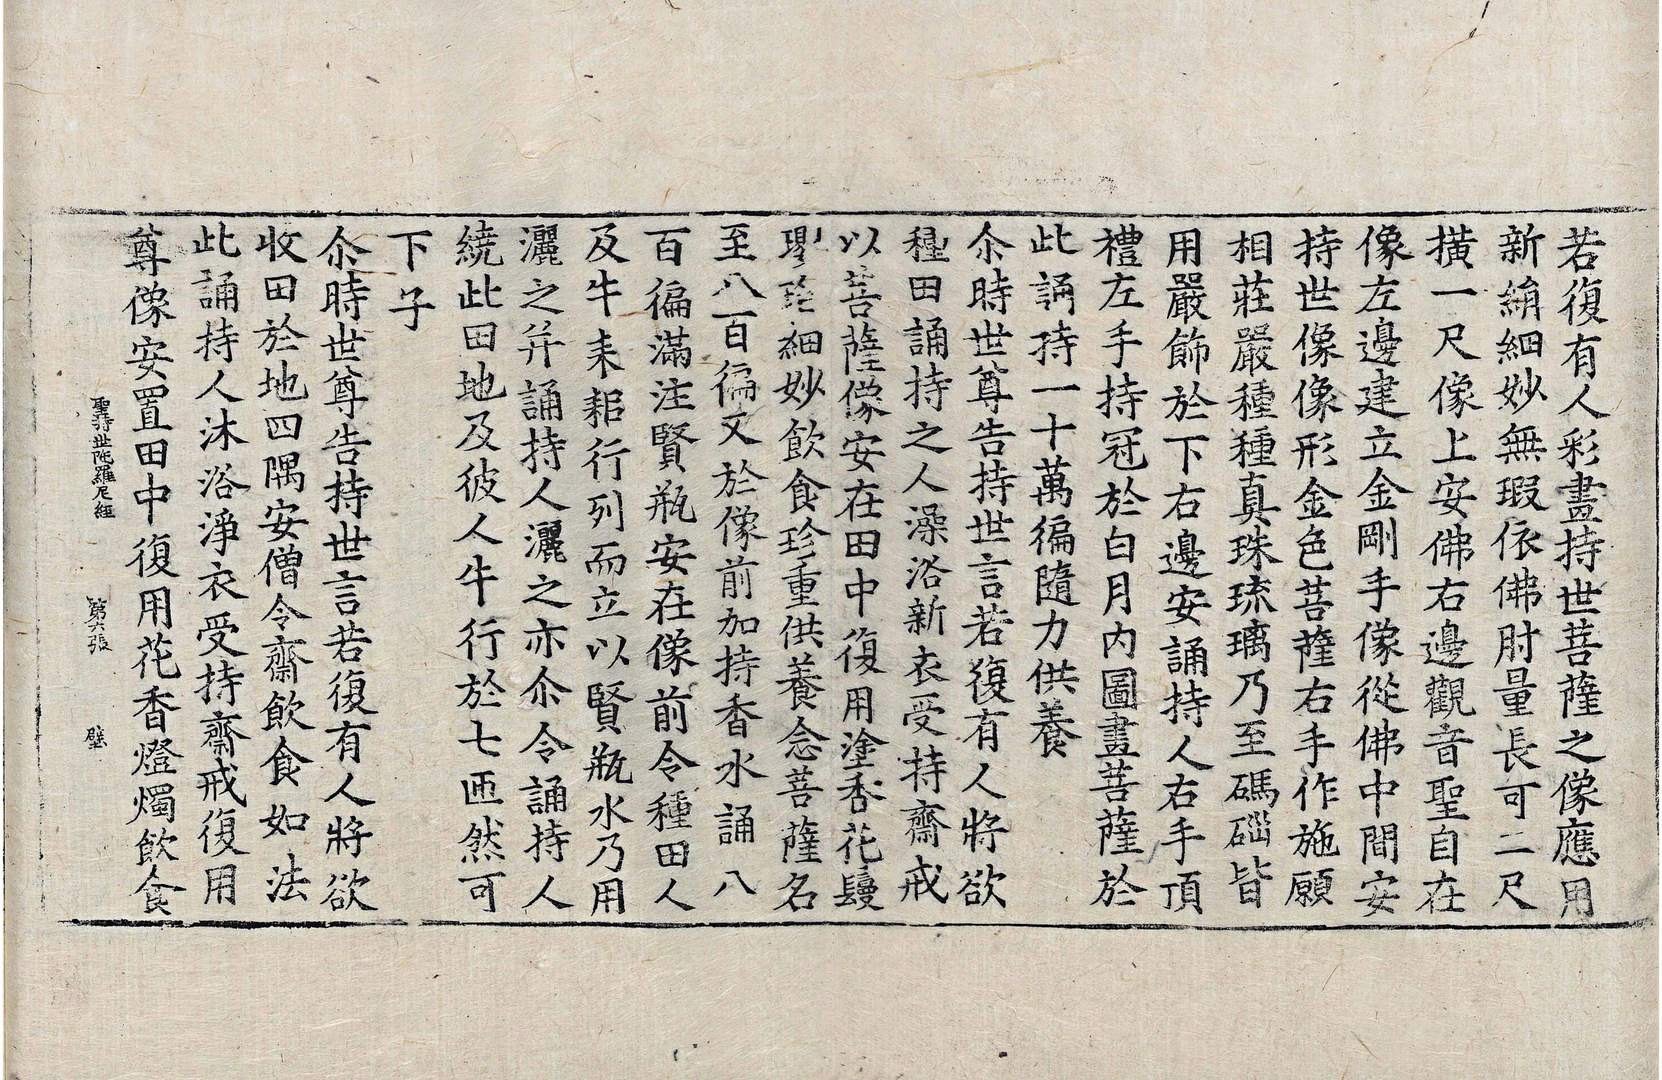 若復有人彩畫持世菩薩之像應用
新絹細妙無瑕依佛肘量長可二尺
撗一尺像上安佛右邊觀音聖自在
像左邊建立金剛手像從佛中間安
持世像像形金色菩薩右手作施願
相莊嚴種種真珠琉璃乃至碼碯皆
用嚴飾於下右邊安誦持人右手頂
禮左手持冠於白月內圖畫菩薩於
此誦持一十萬徧隨力供養
尒時世尊告持世言若復有人將欲
種田誦持之人澡浴新衣受持齋戒
以菩薩像安在田中復用塗香花鬘
璆珍細妙飲食珍重供養念菩薩名
至八百徧又於像前加持香水誦八
百徧滿注賢瓶安在像前令種田人
及牛耒耜行列而立以賢瓶水乃用
灑之并誦持人灑之亦尒令誦持人
繞此田地及彼人牛行於七匝然可
下子
尒時世尊告持世言若復有人將欲
收田於地四隅安僧令齋飲食如法
此誦持人沐浴淨衣受持齋戒復用
尊像安置田中復用花香燈燭飲食
聖持世陀羅尼經 第六張 壁